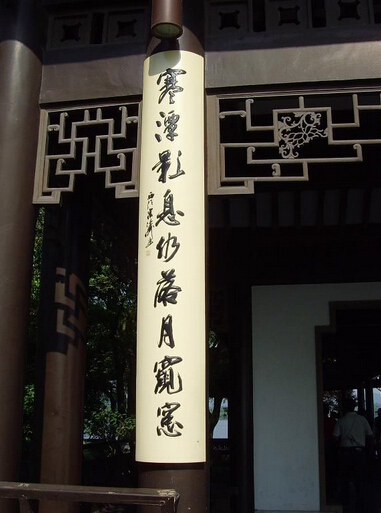 寒潭影息仍落月窺窓